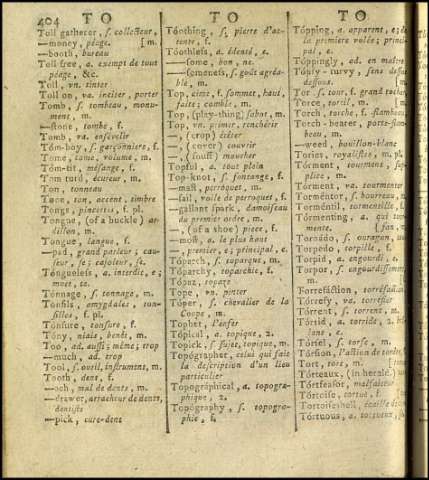 404 TO TO TO
Toll gatherer, s. collecteur,
—money, péage. [m.
—booth, bureau
Toll free, a. exempt de tout
péage, &c.
Toll, vn. tinter
Toll on, va. inciter, porter
Tomb, s. tombeau, monu-
ment, m.
—stone, tombe, f.
Tomb, va. ensévelir
Tóm-boy, s. garçonniere, f.
Tome, tome, volume, m.
Tóm-tit, mésange, f.
Tom turd, écureur, m.
Ton, tonneau
Tone, ton, accent, timbre
Tongs, pincettes, f. pl.
Tongue, (of a buckle) ar-
dillon, m.
Tongue, langue, f.
—pad, grand parleur; cau-
seur, se; cajoleur, se.
Tónguelefs, a. interdit, e;
muet, te.
Tónnage, s. tonnage, m.
Tónsils, amygdales, ton-
silles, f. pl.
Tónsure, tonsure, f.
Tóny, niais, benêt, m.
Too, ad. aussi; même, trop
—much, ad. trop
Tool, s. outil, instrument, m.
Tooth, dent, f.
—ach, mal de dents, m.
—drawer, arracheur de dents,
dentiste
—pick, cure-dent
Tóothing, s. pierre d'at-
tente, f.
Tóothless, a. édenté, e.
—some, bon, ne.
—someness, s. goût agréa-
ble, m.
Top, cime, f. sommet, haut,
faite; comble, m.
Top, (play-thing) sabot, m.
Top, vn. primer, renchérir
—, (crop) étêter
—, (cover) couvrir
—, (snuff) moucher
Topful, a. tout plein
Top-knot, s. fontange, f.
—mast, perroquet, m.
—sail, voile de perroquet, f.
—gallant spark, damoiseau
du premier ordre, m.
—, (of a shoe) piece, f.
—most, a. le plus haut
—, premier, e; principal, e.
Tóparch, s. toparque, m.
Tóparchy, toparchie, f.
Tópaz, topaze
Tope, vn. pinter
Tóper, s. chevalier de la
Coupe, m.
Tophet, l'enfer
Tópical, a. topique, 2.
Topick, s. sujet, topique, m.
Topógrapher, celui qui fait
la description d'un lieu
particulier
Topográphical, a. topogra-
phique, 2.
Topógraphy, s. topogra-
phie, f.
Tópping, a. apparent, e; de
la premiere volée; princi-
pal, e.
Tóppingly, ad. en maître
Tópsy-turvy, sens dessus
dessous.
Tor, s. tour, f. grand rocher
Torce, tortil, m. [m.
Torch, torche, f. flambeau
Torch-bearer, porte-flam-
beau, m.
—weed, bouillon-blanc
Tories, royalistes, m. pl.
Tórment, tourment, sup-
plice, m.
Tormént, va. tourmenter
Torméntor, s. bourreau, m.
Torméntil, tormentille, f.
Torménting, a. qui tour-
mente.
Tornádo, s. ouragan, m.
Torpedo, torpille, f.
Torpid, a. engourdi, e.
Torpor, s. engourdissement,
m.
Torrefáction, torréfaction
Tórrefy, va. torréfier
Tórrent, s. torrent, m.
Tórrid, a. torride, 2. brû-
lant, e.
Tórsel, s. torse, m.
Tórsion, l'action de tordre,
Tort, tort, m.
Torteaux, (in herald.)
Tórtfeasor, malfaiteur
Tórtoise, tortue, f.
Tórtoiseshell, écaille de
Tórtuous, a. tortueux,